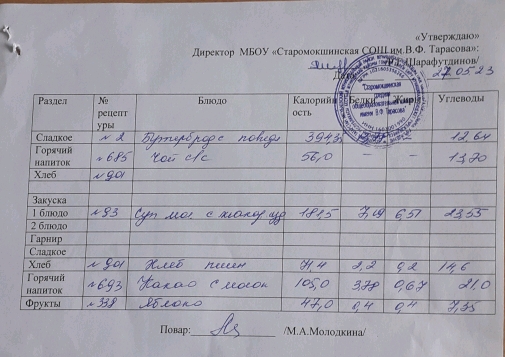 «Утверждаю»
Директор МБОУ «Старомокшинская СОШ им.В.Ф. Тарасова»:
Шарафутдинов/
27.05.23
"Старомокшинская
средняя
общеобразовательная
имени В.Ф. Тарасова"
Раздел № рецептуры Блюдо Калорийность Белки Жир Углеводы
Сладкое №2 Бутерброд с повидл 394,3 12,64
Горячий напиток №685 Чай с/с 56,0 – – 13,70
Хлеб №901
Закуска
1 блюдо №93 Суп мол с 6,51 23,55
2 блюдо
Гарнир
Сладкое
Хлеб №901 Хлеб пшен 2,2 0,2 14,6
Горячий напиток №693 Какао с молок 105,0 3,78 0,67 21,0
Фрукты №338 Яблоко 47,0 0,4 0,4 7,35
Повар: /М.А.Молодкина/